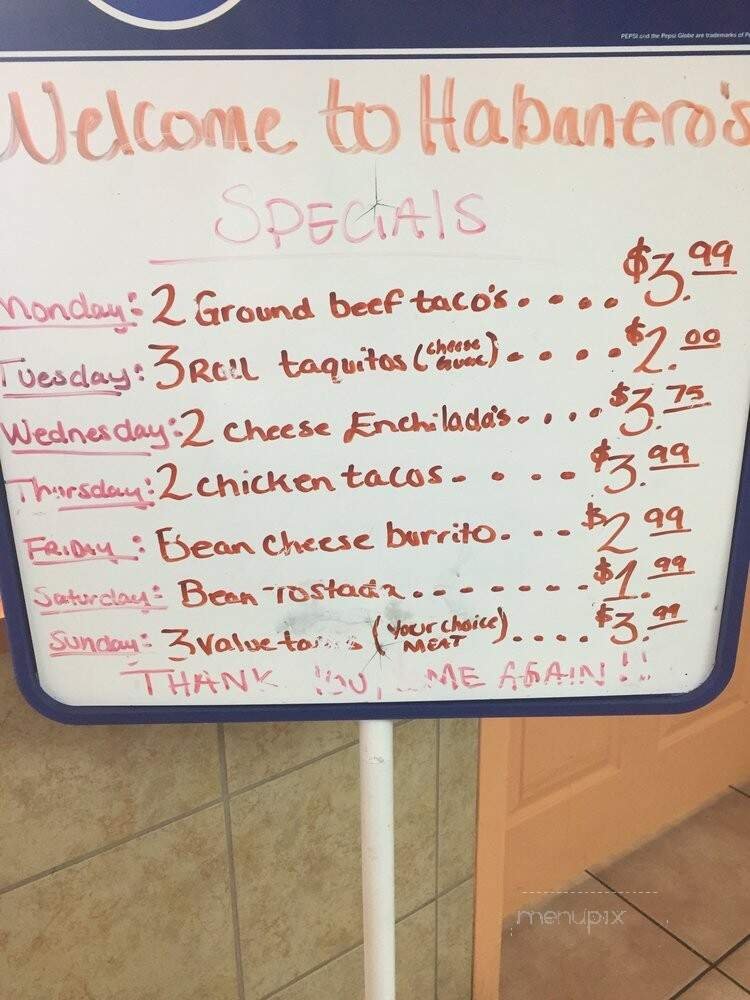 PEPSI and the Pepsi Globe are trademarks of P
Welcome to Habanero's
SPECIAlS
Monday: 2 Ground beef taco's.... $3.99
Tuesday: 3 Roll taquitos (cheese Guac).... $2.00
Wednesday: 2 cheese Enchilada's.... $3.75
Thursday: 2 chicken tacos.... $3.99
FRIDAY: Bean cheese burrito.... $2.99
Saturday: Bean Tostada....... $1.99
Sunday: 3 Value (Your choice MEAT).... $3.99
THANK AGAIN!!
menupix